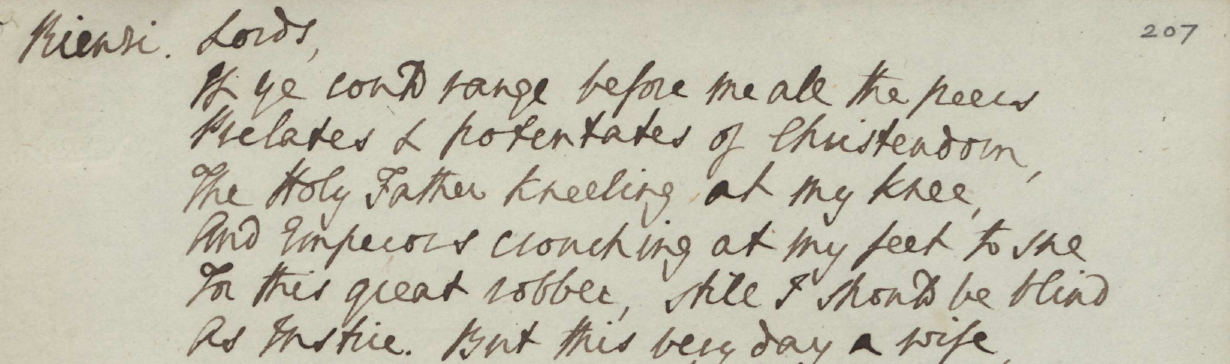 Rienzi. Lords, 207
If ye could range before me all the peers
Prelates & potentates of Christendom,
The Holy Father kneeling at my knee,
And Emperors crouching at my feet to sue
For this great robber, still I should be blind
As Justice. But this very day a wife,